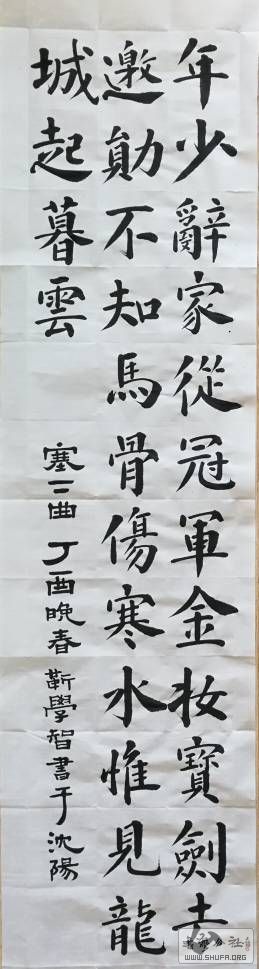 年少辭家從冠軍金妝寶劍去
邀勛不知馬骨傷寒水惟見龍
城起暮雲
塞下曲 丁酉晚春 靳學智書于沈陽
WWW.SHUFA.ORG